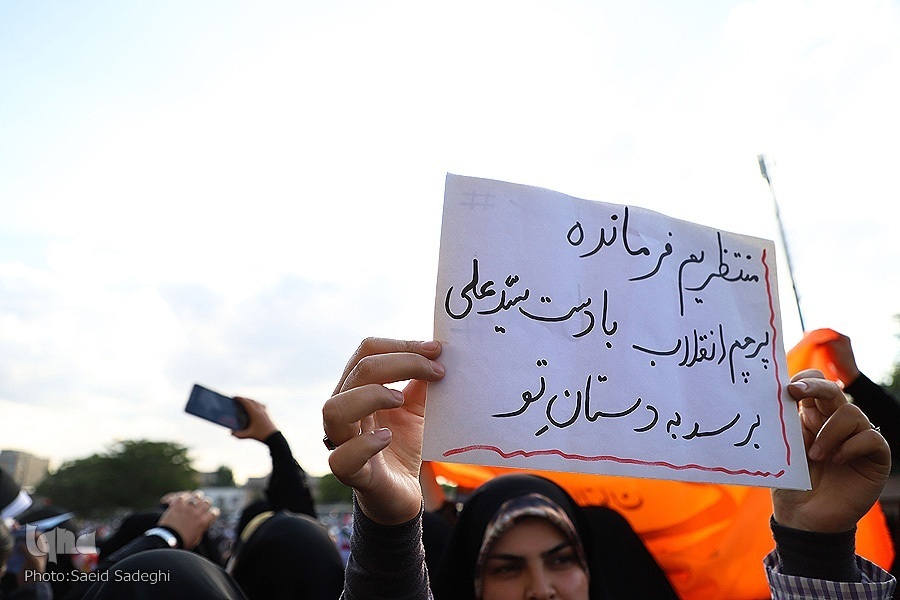 منتظریم فرمانده
پرچم انقلاب با دست سیّدعلی
برسد به دستانِ تو
iqna
Photo:Saeid Sadeghi